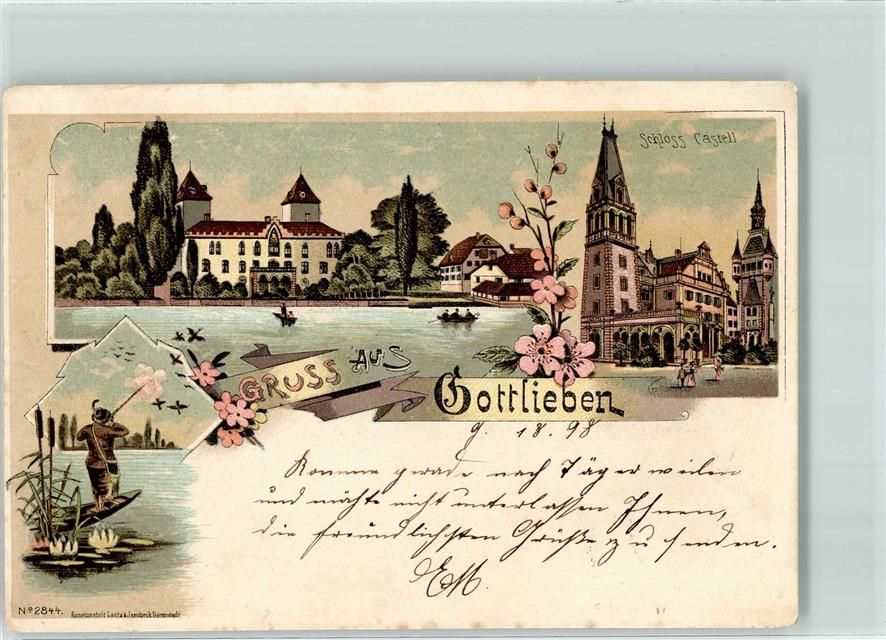 Schloss Castell
GRUSS AUS
Gottlieben
9. 18. 98
Komme gerade nach Tägerweilen
und möchte nicht unterlassen Ihnen,
die freundlichsten Grüße zu senden.
EM.
Nº 2844.
Kunstanstalt Lautz & Jsenbeck Darmstadt